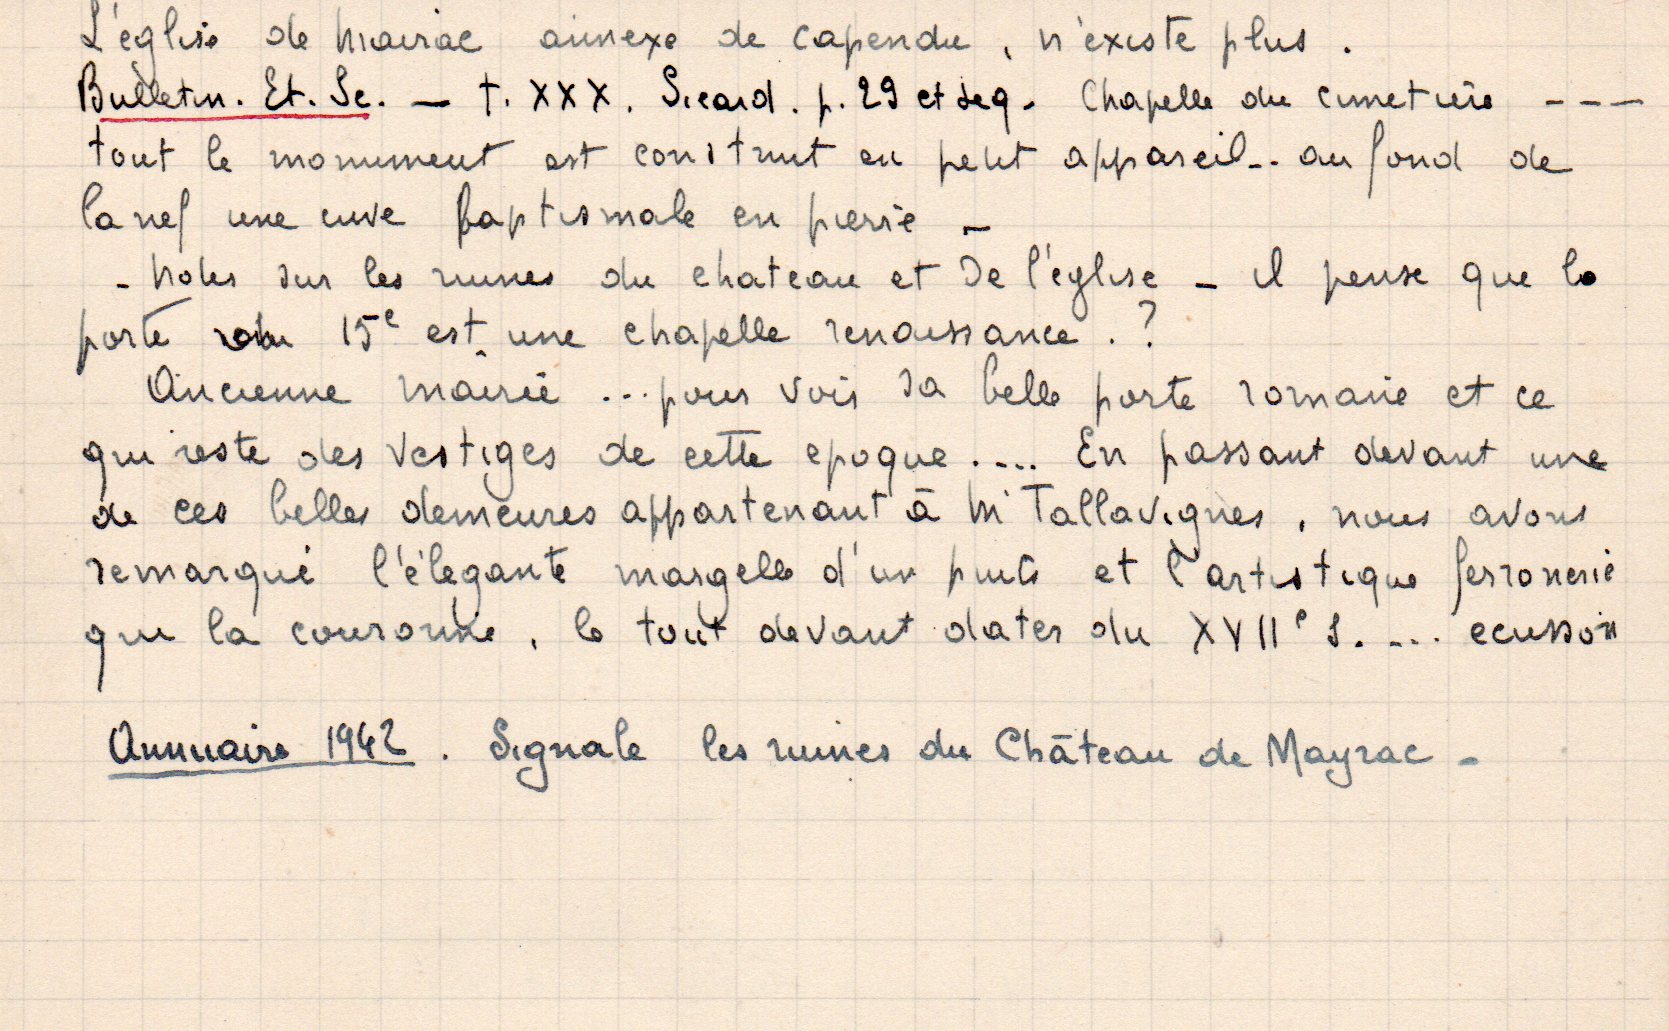 L'église de Mairac annexe de Capendu, n'existe plus.
Bulletin. Et. Sc. — t. XXX. Sicard. p. 29 et seq. Chapelle du cimetière ---
tout le monument est construit en petit appareil.. au fond de
la nef une cuve baptismale en pierre -
- Notes sur les ruines du chateau et de l'église - il pense que la
porte 15e est une chapelle renaissance. ?
Ancienne mairie ... pour voir sa belle porte romane et ce
qui reste des vestiges de cette epoque .... En passant devant une
de ces belles demeures appartenant à Mr Tallavignes, nous avons
remarqué l'élegante margelle d'un puits et l'artistique ferronerie
qui la couronne, le tout devant dater du XVIIe s. ... ecusson
Annuaire 1942. Signale les ruines du Château de Mayrac -